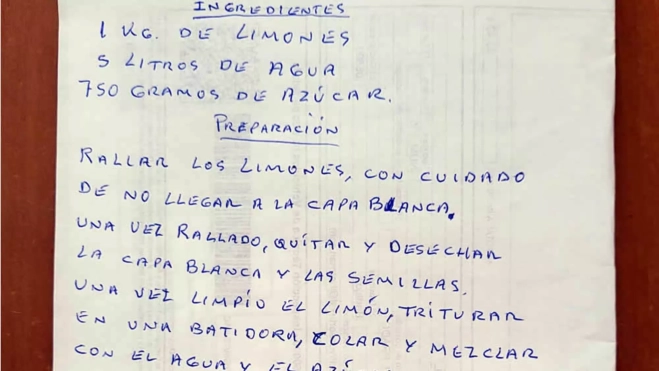 INGREDIENTES
1 KG. DE LIMONES
5 LITROS DE AGUA
750 GRAMOS DE AZÚCAR.
PREPARACIÓN
RALLAR LOS LIMONES, CON CUIDADO
DE NO LLEGAR A LA CAPA BLANCA.
UNA VEZ RALLADO, QUITAR Y DESECHAR
LA CAPA BLANCA Y LAS SEMILLAS.
UNA VEZ LIMPIO EL LIMÓN, TRITURAR
EN UNA BATIDORA, COLAR Y MEZCLAR
CON EL AGUA Y EL